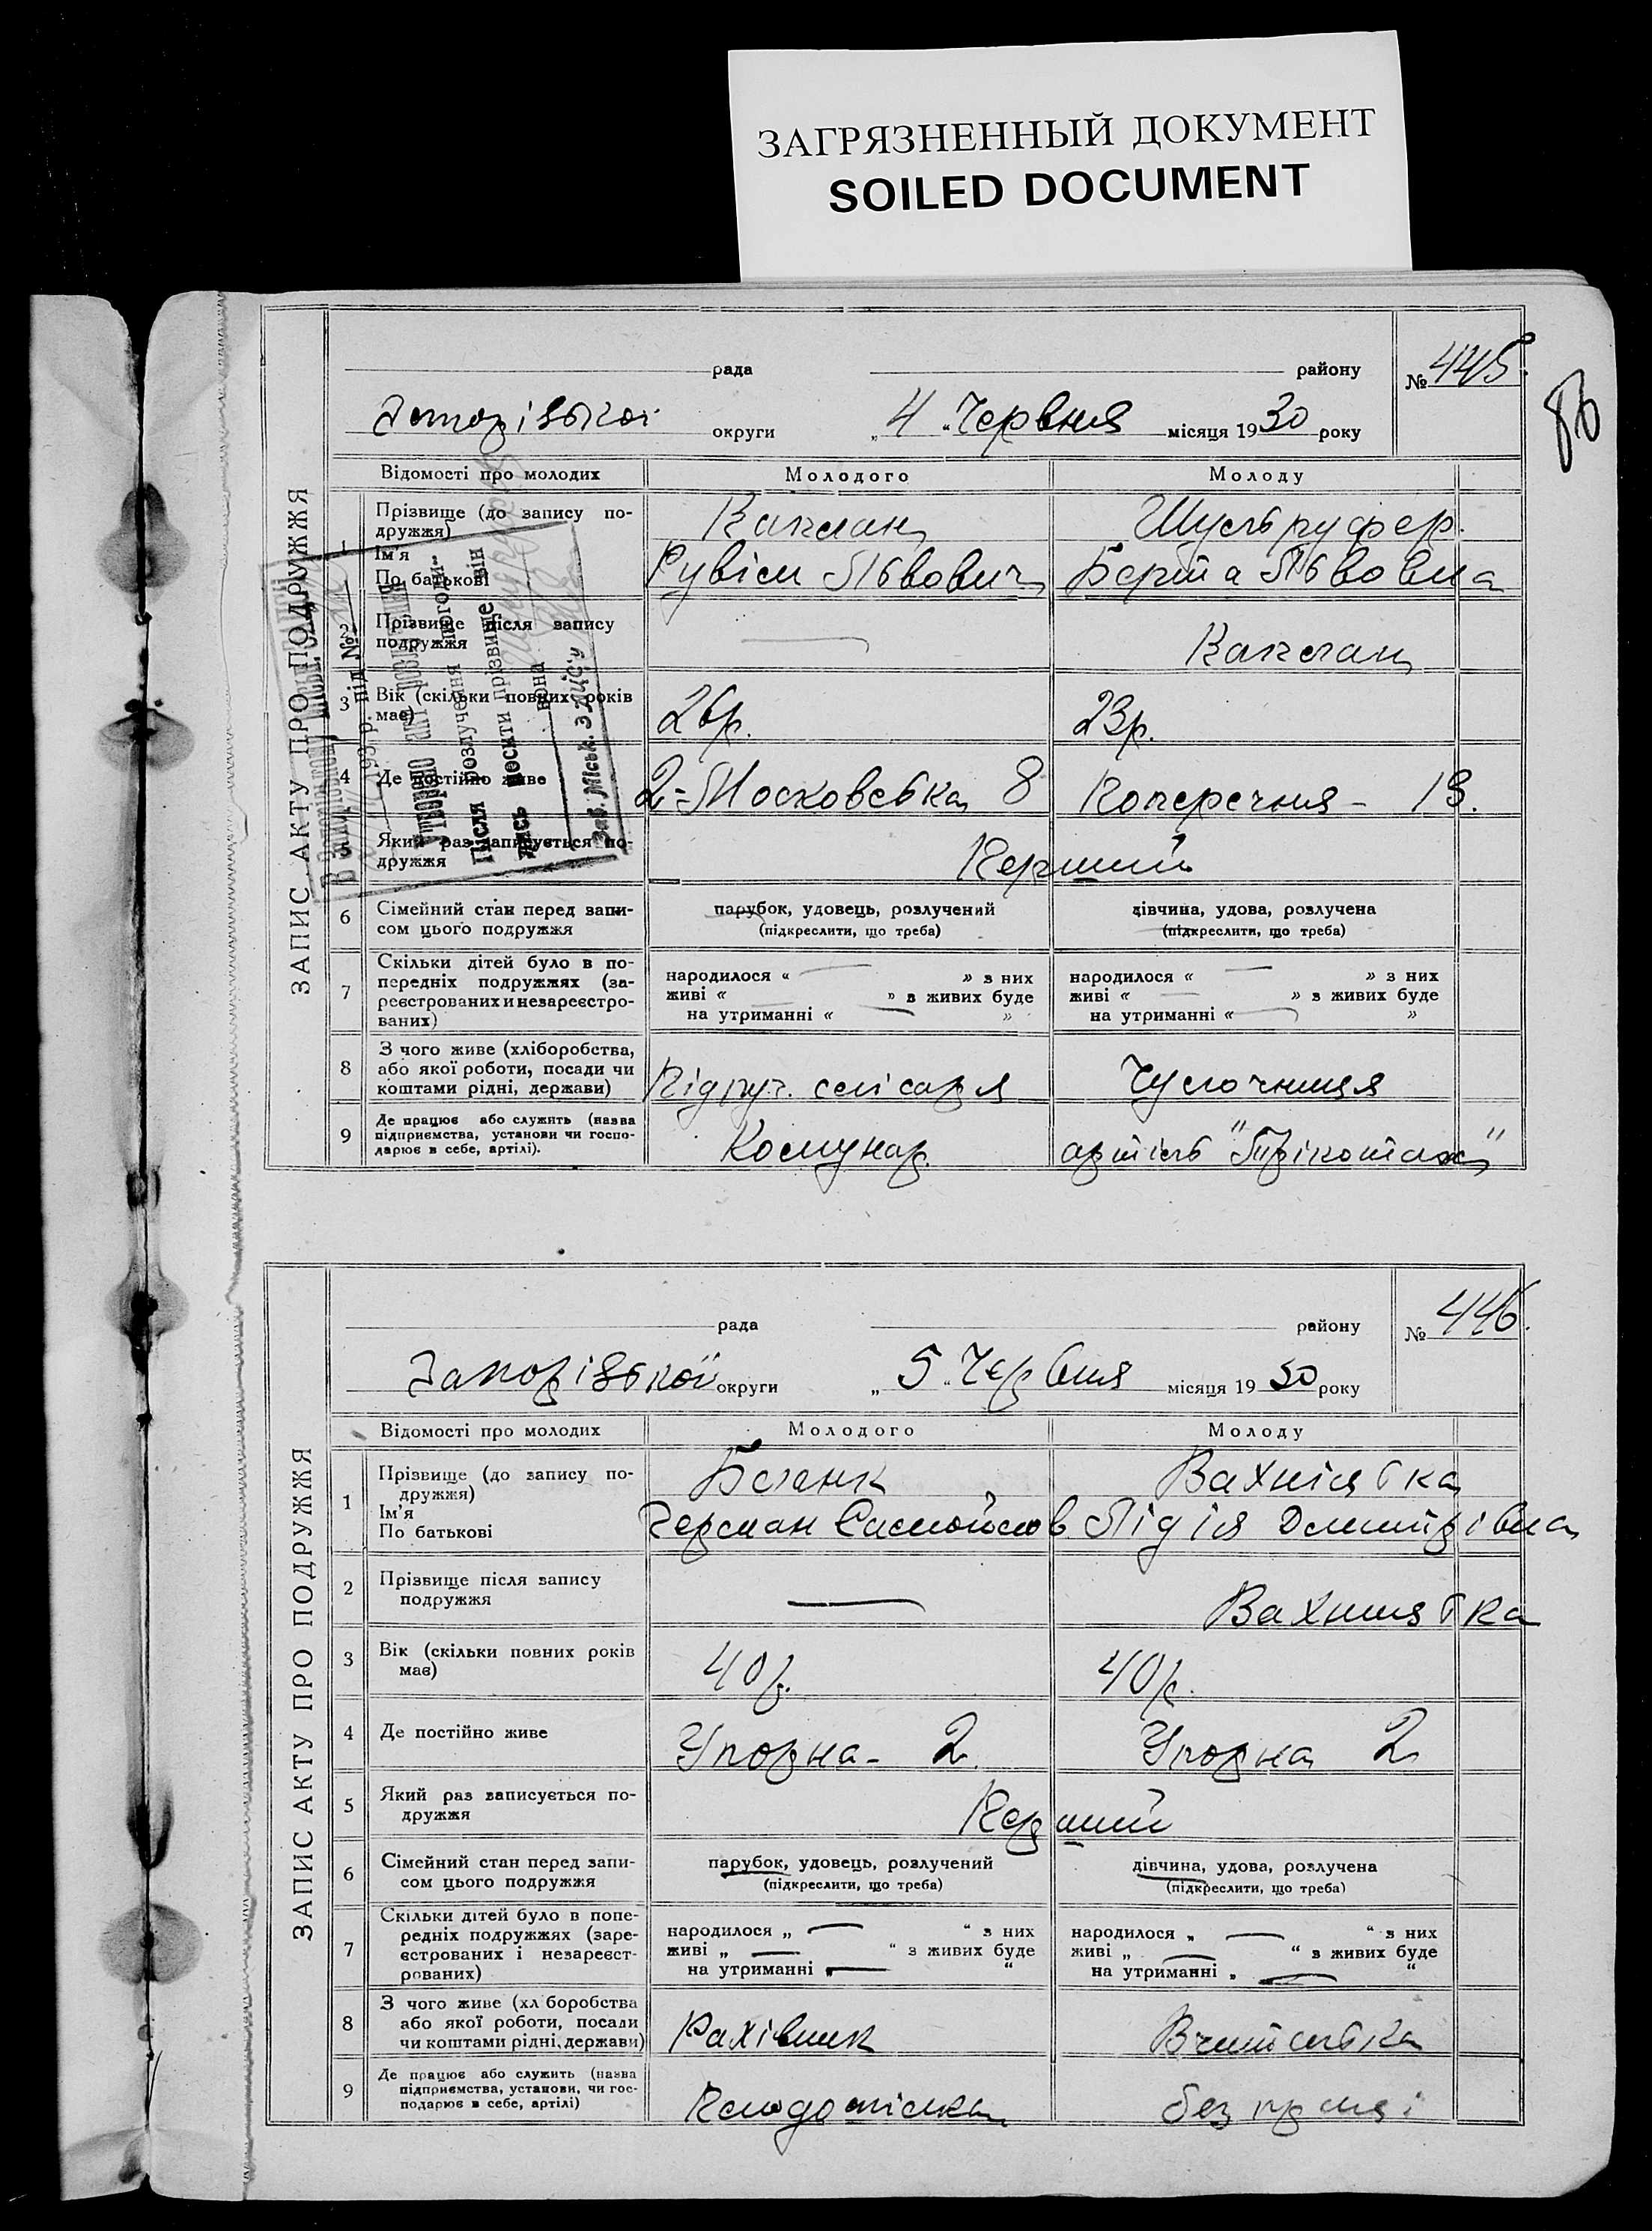 ЗАГРЯЗНЕННЫЙ ДОКУМЕНТ
SOILED DOCUMENT
86
ЗАПИС АКТУ ПРО ПОДРУЖЖЯ
рада району № 445.
округи „4“ Червня місяця 1930 року
Відомості про молодих Молодого Молоду
1 Прізвище (до запису по-
дружжя) Каплан
Ім'я
По батькові Рувім Львович Берта Львовна
2 Прізвище після запису
подружжя — Каплан
3 Вік (скільки повних років
має) 26р. 23р.
4 Де постійно живе 2-Московська 8 Поперечня -
5 Який раз записується по-
дружжя Перший
6 Сімейний стан перед запи-
сом цього подружжя
парубок, удовець, розлучений дівчина, удова, розлучена
(підкреслити, що треба) (підкреслити, що треба)
7 Скільки дітей було в по-
передніх подружжях (за-
реєстрованих и незареєстро-
ваних)
народилося « — » з них народилося « — » з них
живі « — » з живих буде живі « — » з живих буде
на утриманні « — » на утриманні « — »
8 З чого живе (хліборобства,
або якої роботи, посади чи
коштами рідні, держави) Підруч. слісаря Чулочниця
9 Де працює або служить (назва
підприємства, установи чи госпо-
дарює в себе, артілі). Комунар. артіль "Трікотаж"
Після розлучення погоди-
лись носити прізвище він
вона
Зав. Міськ. ЗАЦС'у
ЗАПИС АКТУ ПРО ПОДРУЖЖЯ
рада району № 446.
Запорізької округи „5“ Червня місяця 1930 року
Відомості про молодих Молодого Молоду
1 Прізвище (до запису по-
дружжя) Бланк
Ім'я
По батькові Герман Самойлов Лідія Дмитрівна
2 Прізвище після запису
подружжя —
3 Вік (скільки повних років
має) 40р. 40р.
4 Де постійно живе Упорна - 2. Упорна 2
5 Який раз записується по-
дружжя Перший
6 Сімейний стан перед запи-
сом цього подружжя
парубок, удовець, розлучений дівчина, удова, розлучена
(підкреслити, що треба) (підкреслити, що треба)
7 Скільки дітей було в попе-
редніх подружжях (заре-
єстрованих і незареєст-
рованих)
народилося „ — “ з них народилося „ — “ з них
живі „ — “ з живих буде живі „ — “ з живих буде
на утриманні „ — “ на утриманні „ — “
8 З чого живе (хл боробства
або якої роботи, посади
чи коштами рідні, держави) Рахівник Вчителька
9 Де працює або служить (назва
підприємства, установи, чи гос-
подарює в себе, артілі) без праці